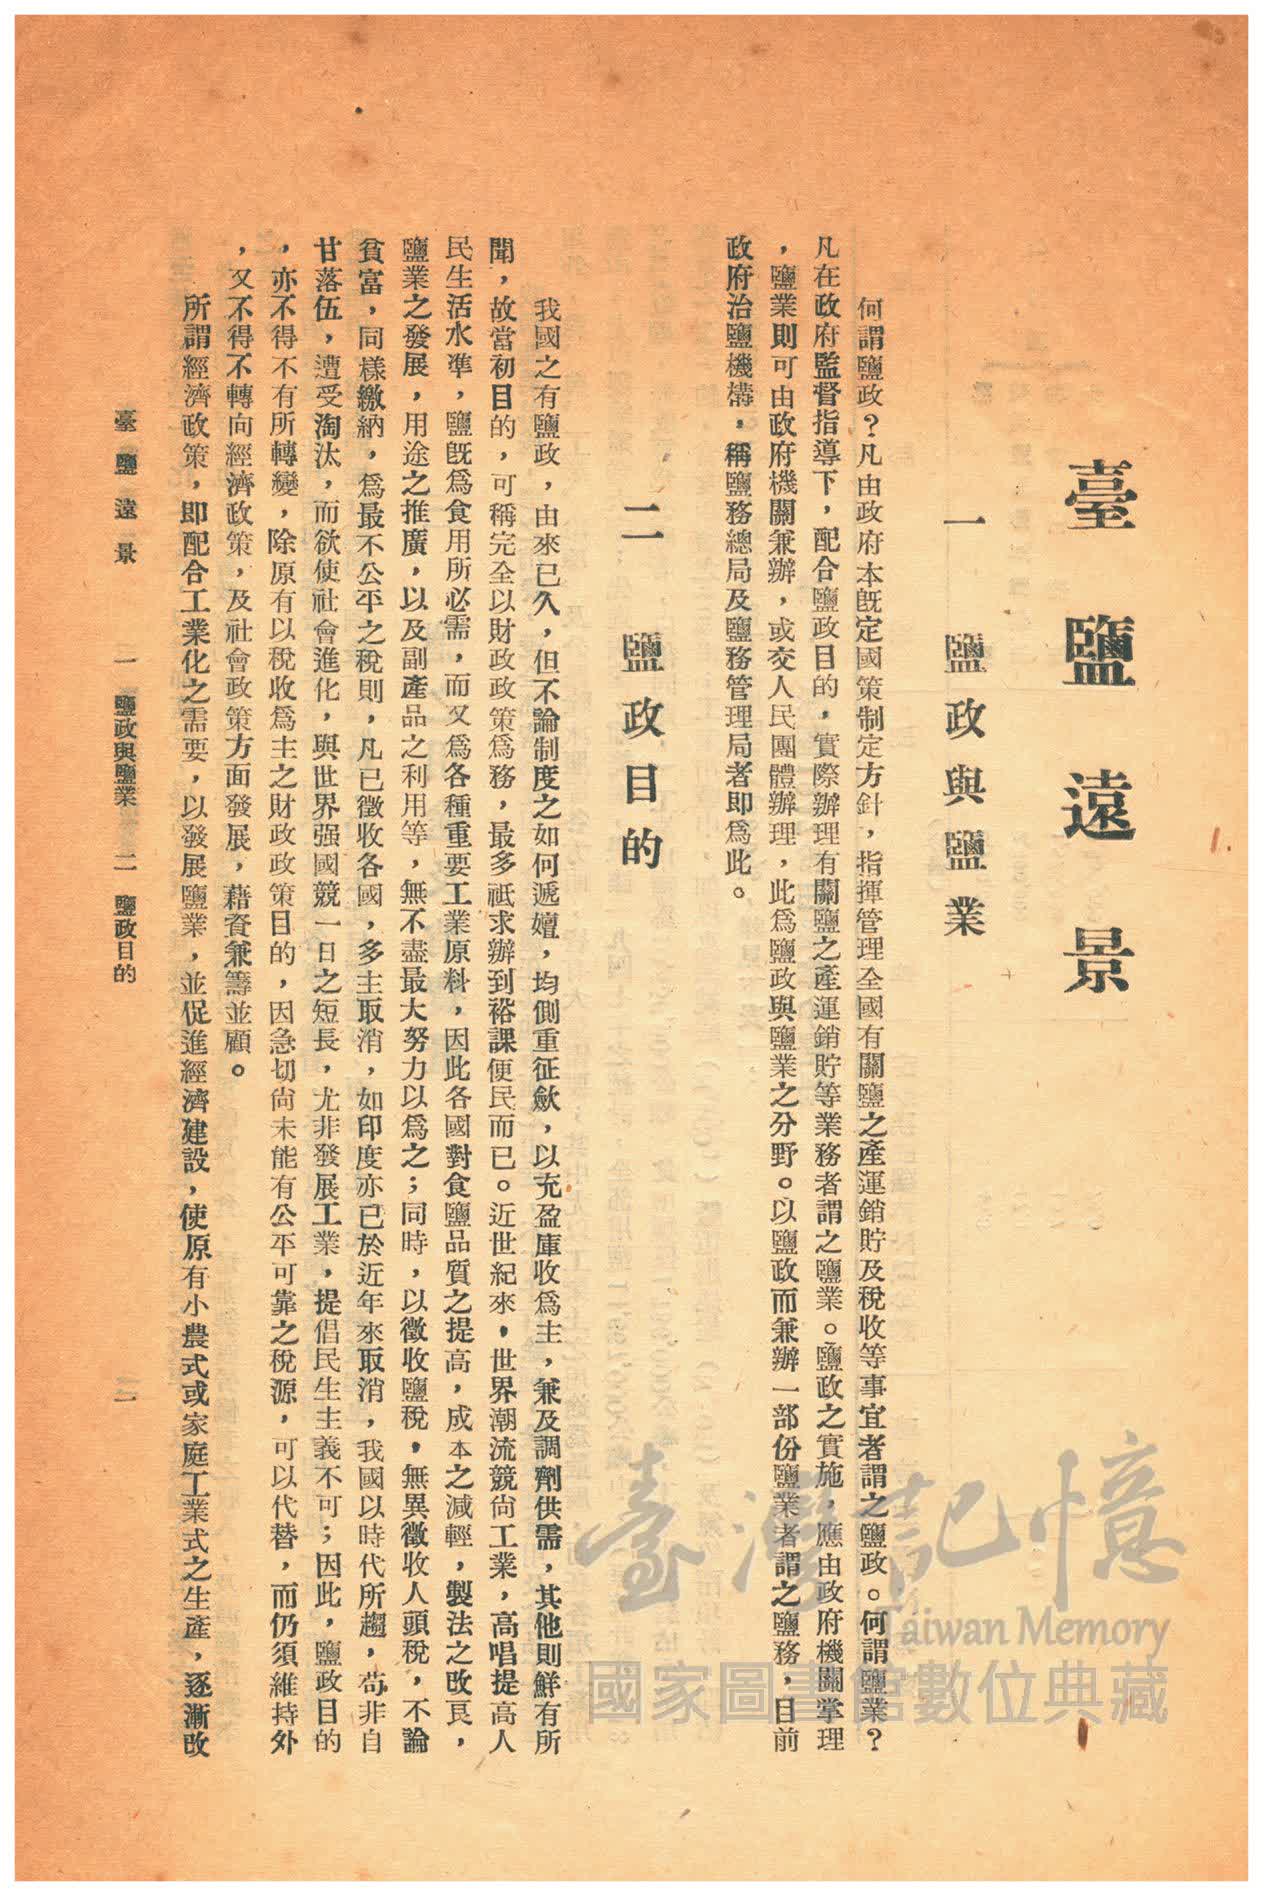 臺鹽遠景
一　鹽政與鹽業
何謂鹽政？凡由政府本旣定國策制定方針，指揮管理全國有關鹽之產運銷貯及稅收等事宜者謂之鹽政。何謂鹽業？
凡在政府監督指導下，配合鹽政目的，實際辦理有關鹽之產運銷貯等業務者謂之鹽業。鹽政之實施，應由政府機關掌理
，鹽業則可由政府機關兼辦，或交人民團體辦理，此爲鹽政與鹽業之分野。以鹽政而兼辦一部份鹽業者謂之鹽務，目前
政府治鹽機構，稱鹽務總局及鹽務管理局者即爲此。
二　鹽政目的
我國之有鹽政，由來已久，但不論制度之如何遞嬗，均側重征斂，以充盈庫收爲主，兼及調劑供需，其他則鮮有所
聞，故當初目的，可稱完全以財政政策爲務，最多祇求辦到裕課便民而已。近世紀來，世界潮流競尙工業，高唱提高人
民生活水準，鹽旣爲食用所必需，而又爲各種重要工業原料，因此各國對食鹽品質之提高，成本之減輕，製法之改良，
鹽業之發展，用途之推廣，以及副產品之利用等，無不盡最大努力以爲之；同時，以徵收鹽稅，無異徵收人頭稅，不論
貧富，同樣繳納，爲最不公平之稅則，凡已徵收各國，多主取消，如印度亦已於近年來取消，我國以時代所趨，苟非自
甘落伍，遭受淘汰，而欲使社會進化，與世界强國競一日之短長，尤非發展工業，提倡民生主義不可；因此，鹽政目的
，亦不得不有所轉變，除原有以稅收爲主之財政政策目的，因急切尙未能有公平可靠之稅源，可以代替，而仍須維持外
，又不得不轉向經濟政策，及社會政策方面發展，藉資兼籌並顧。
所謂經濟政策，即配合工業化之需要，以發展鹽業，並促進經濟建設，使原有小農式或家庭工業式之生產，逐漸改
臺鹽遠景　一　鹽政與鹽業　二　鹽政目的　一
臺灣記憶
Taiwan Memory
國家圖書館數位典藏